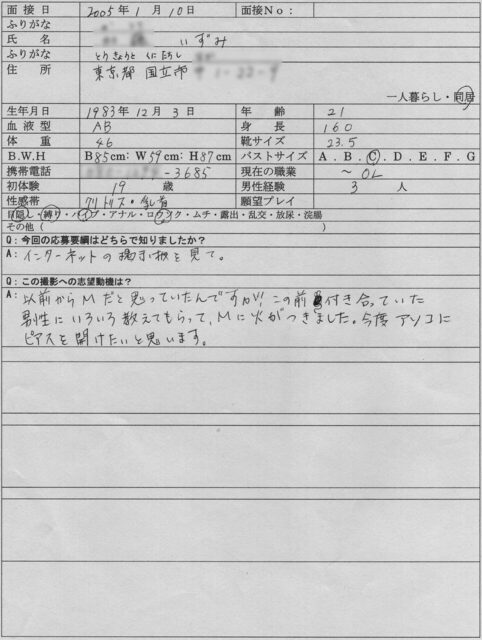 面接日 2005年 1月 10日 面接No:
ふりがな
氏名 いずみ
ふりがな とうきょうと くにたちし
住所 東京都 国立市
一人暮らし・同居
生年月日 1983年 12月 3日 年齢 21
血液型 AB 身長 160
体重 46 靴サイズ 23.5
B.W.H B85cm: W59cm: H87cm バストサイズ A . B . C . D . E . F . G
携帯電話 -3685 現在の職業 ~ OL
初体験 19 歳 男性経験 3 人
性感帯 クリトリス・乳首 願望プレイ
目隠し・縛り・バイブ・アナル・ロウソク・ムチ・露出・乱交・放尿・浣腸
その他（ ）
Q：今回の応募要綱はどちらで知りましたか？
A：インターネットの掲示板を見て。
Q：この撮影への志望動機は？
A：以前からMだと思っていたんですが!この前 付き合っていた
男性にいろいろ教えてもらって、Mに火がつきました。今度アソコに
ピアスを開けたいと思います。